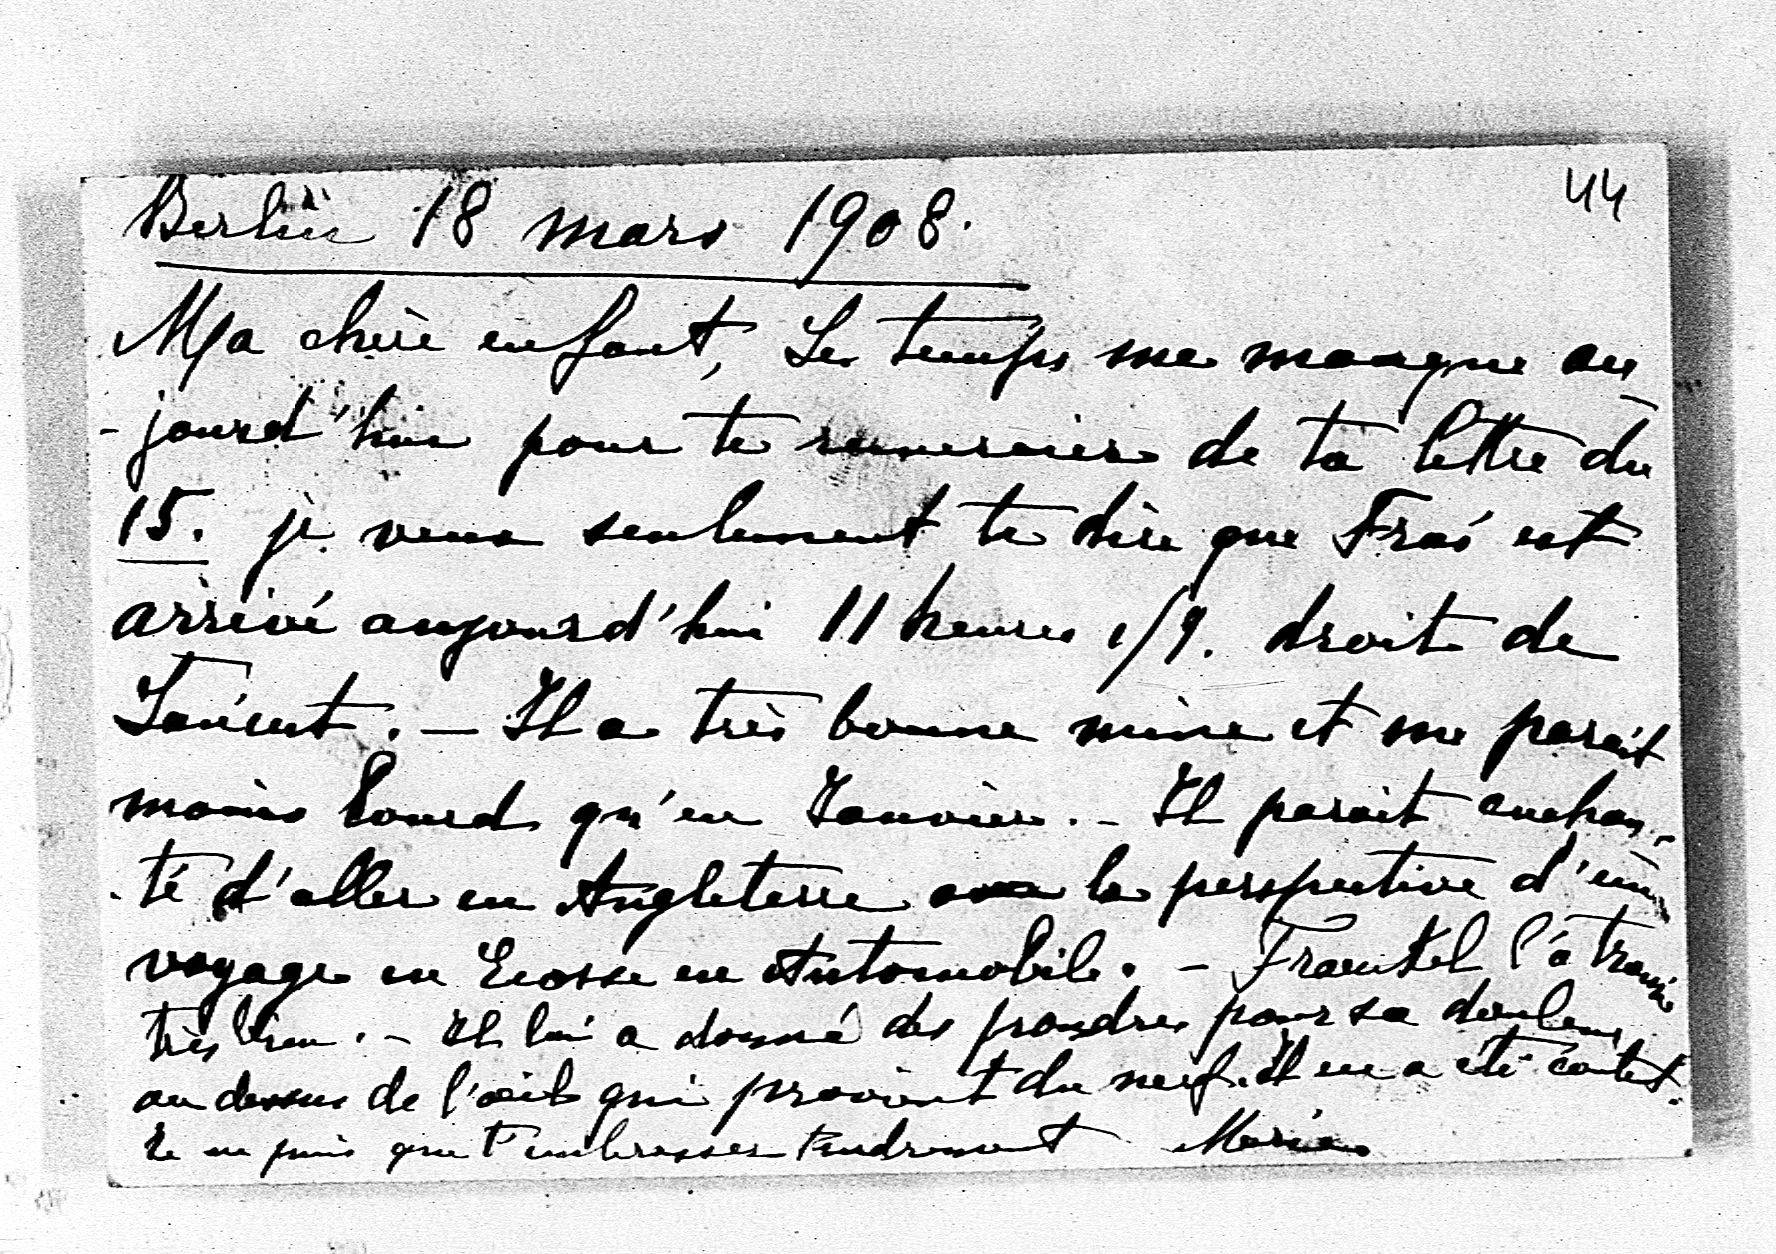 44
Berlin 18 mars 1908.
Ma chère enfant, Le temps me manque au
-jourd'hui pour te remercier de ta lettre du
15. je veux seulement te dire que est
arrivé aujourd'hui 11 heures 1/2. droit de
. — Il a très bonne mine et me parait
moins lourd qu'en Janvier. - Il parait enchan-
-té d'aller en Angleterre avec la perspective d'un
voyage en Ecosse en Automobile. - Fraenkel l'a trouvé
très bien. - Il lui a donné des poudres pour sa douleur
au dessus de l'œil qui provient du nerf. Il en a été content.
Je ne puis que t'embrasser tendrement Marie